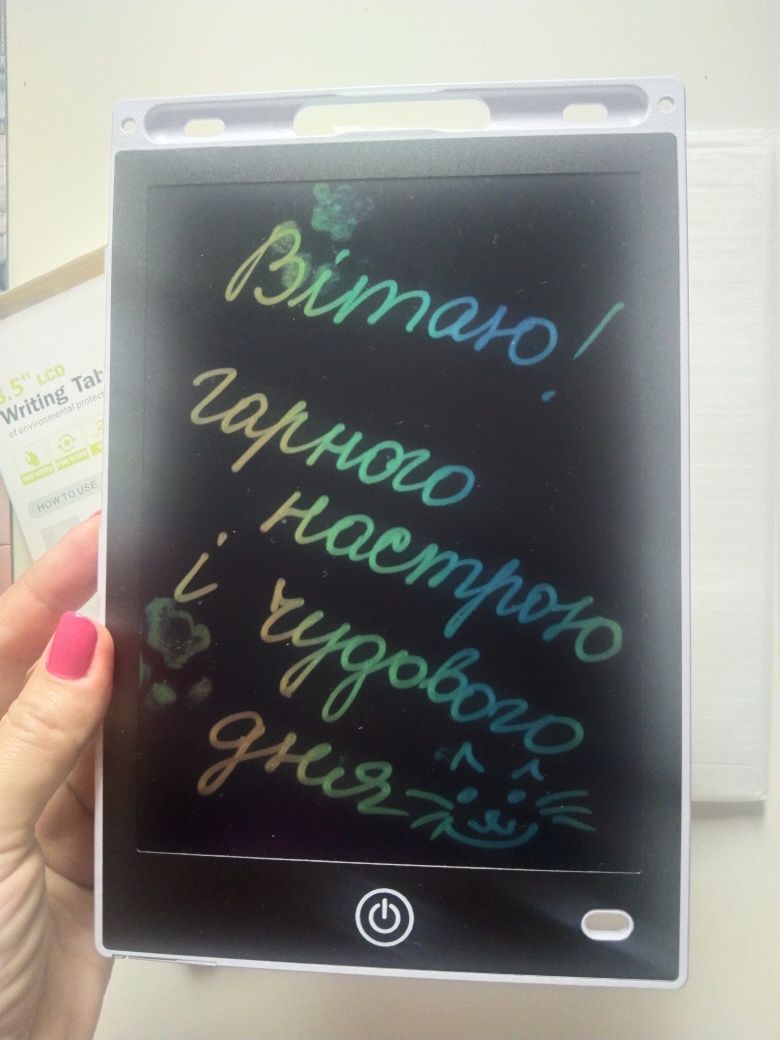 Вітаю!
гарного
настрою
і чудового
дня
8.5" LCD
Writing Tab
of environmental protect
HOW TO USE